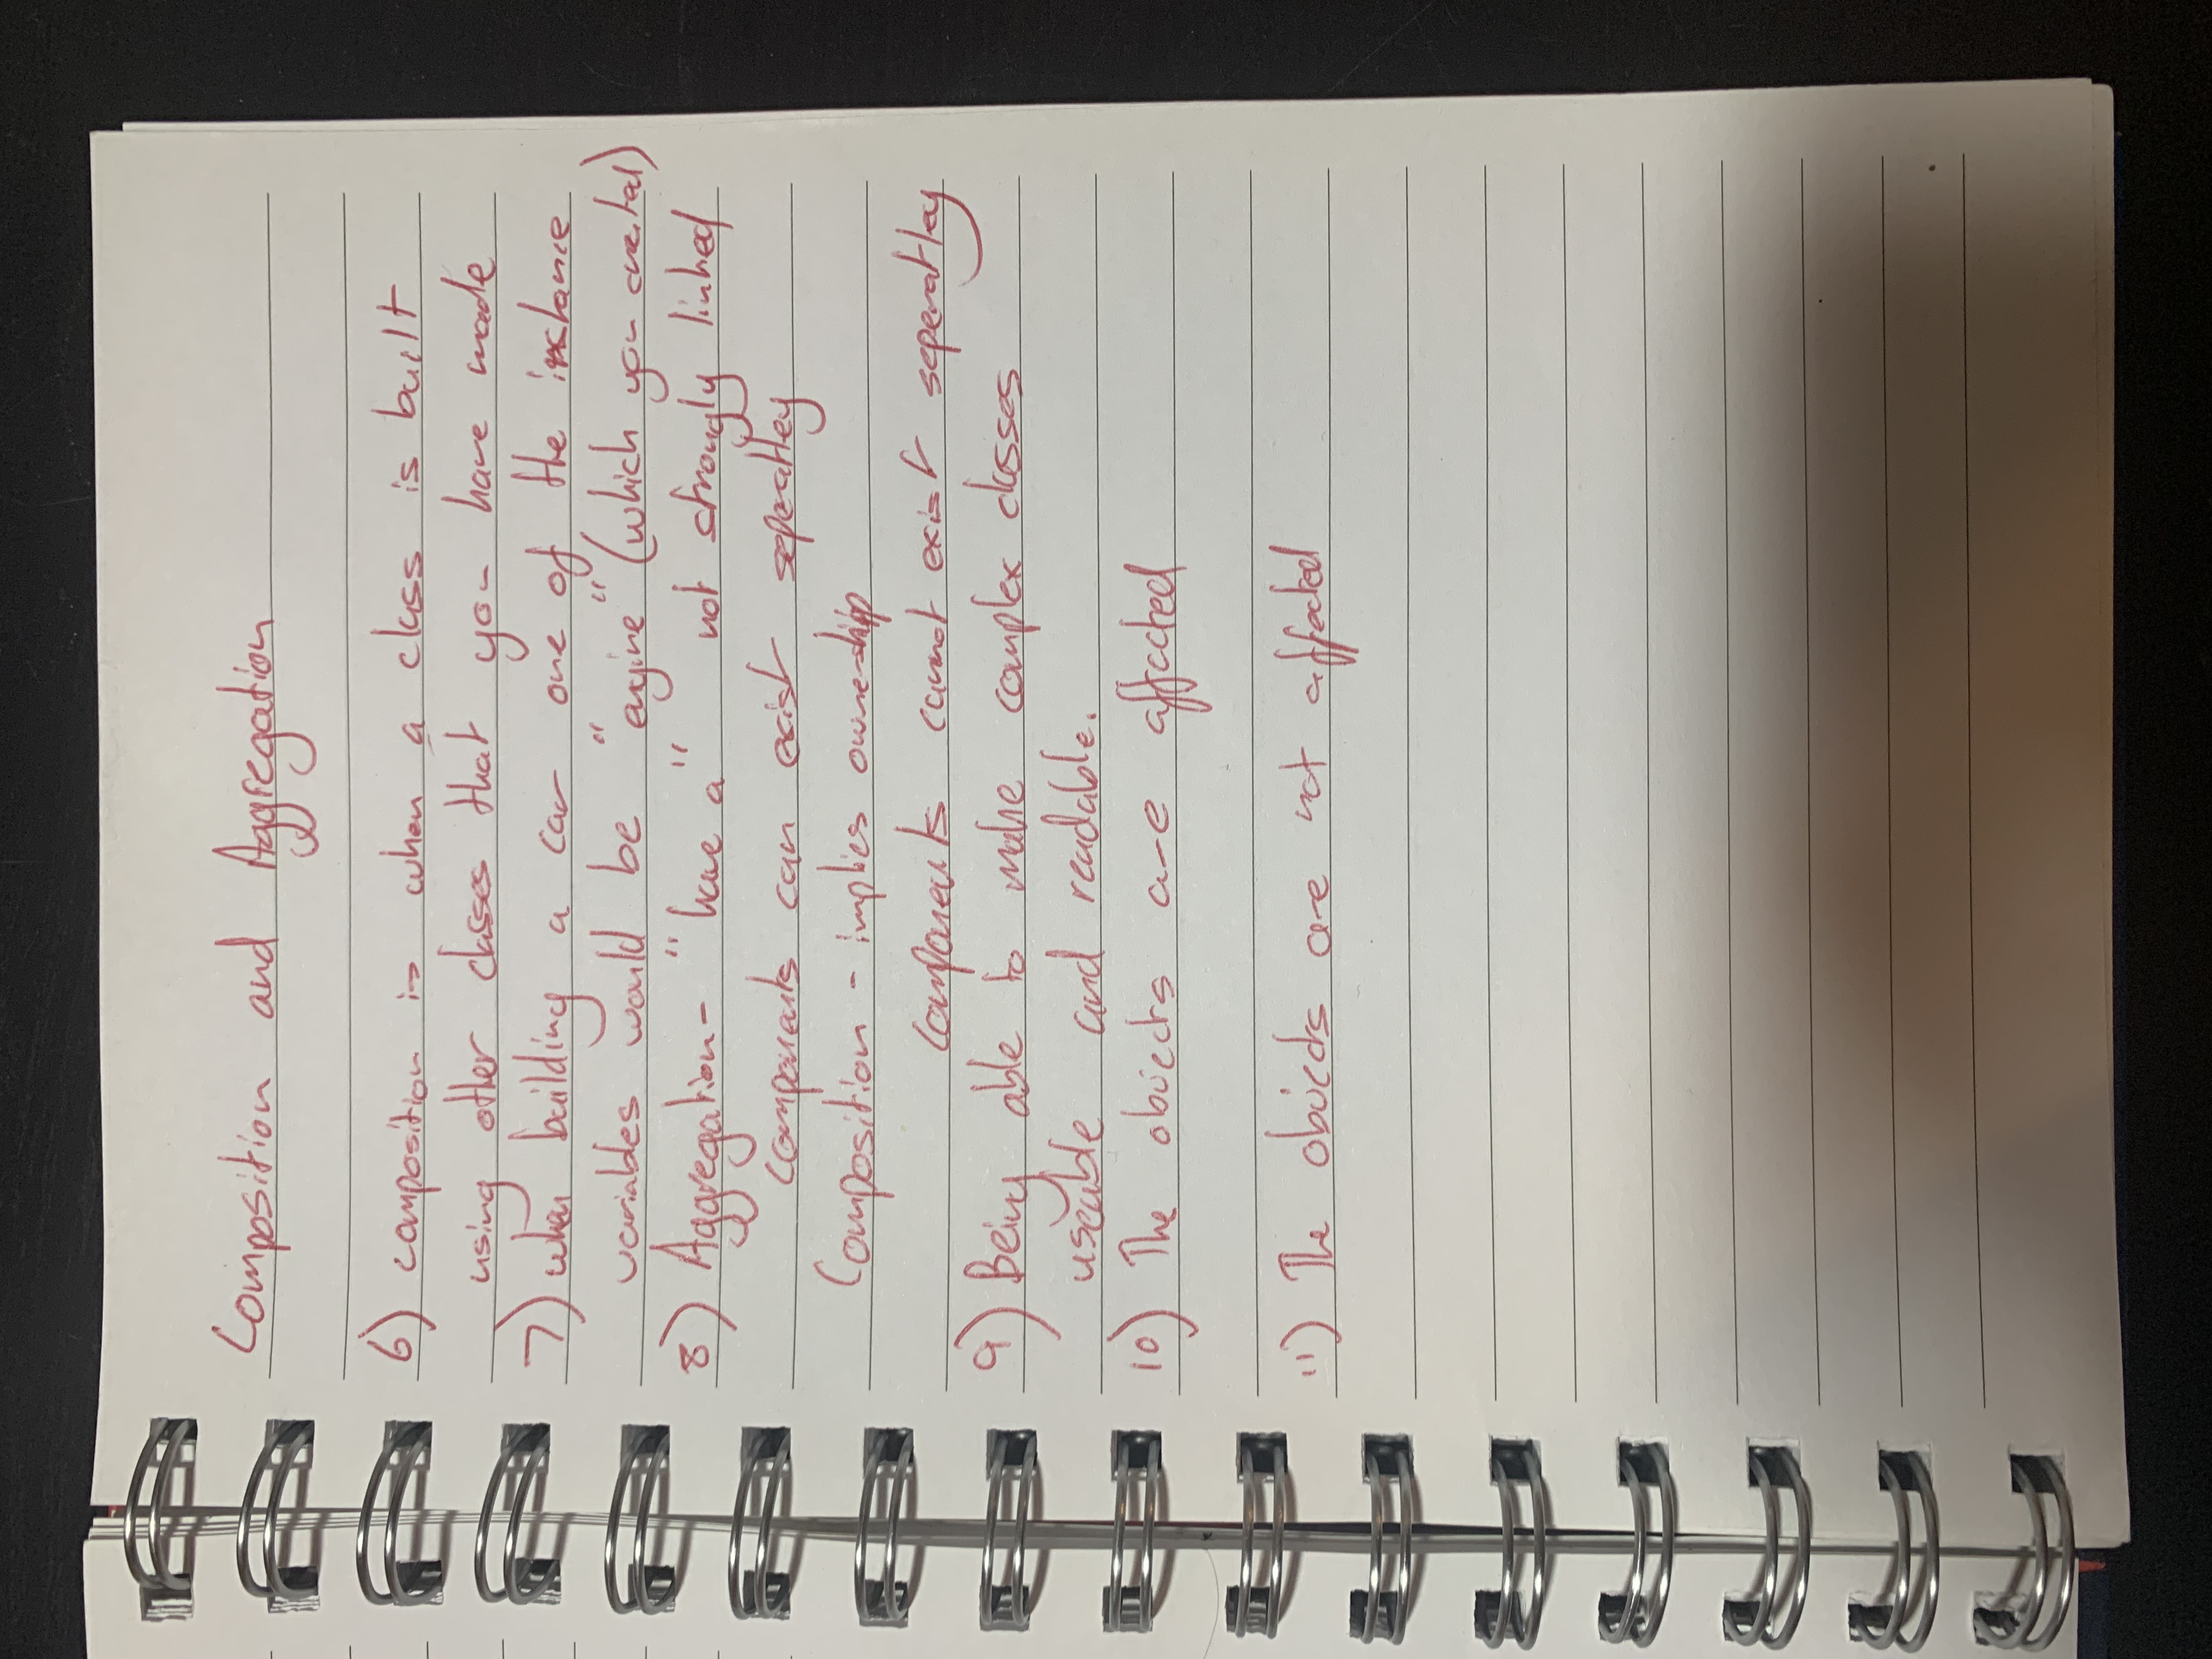 Composition and Aggregation
6) composition is when a class is built
using other classes that you have made
7) when building a car one of the instance
variables would be "engine" (which you created)
8) Aggregation - "have a" not strongly linked
components can exist seperatley
Composition - implies ownership
components cannot exist seperatley
9) Being able to make complex classes
useable and readable.
10) The objects are affected
11) The objects are not affected